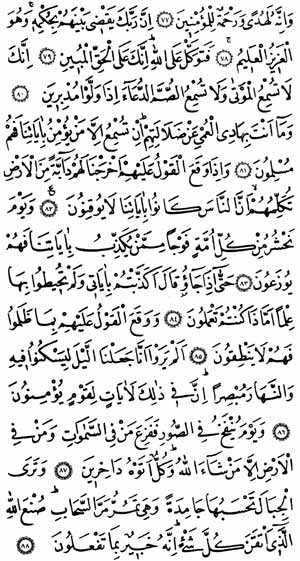 وَاِنَّهُ لَهُدًى وَرَحْمَةٌ لِلْمُؤْمِنٖينَ ﴿٧٧﴾ اِنَّ رَبَّكَ يَقْضٖى بَيْنَهُمْ بِحُكْمِهٖ وَهُوَ
الْعَزٖيزُ الْعَلٖيمُ ﴿٧٨﴾ فَتَوَكَّلْ عَلَى اللّٰهِ اِنَّكَ عَلَى الْحَقِّ الْمُبٖينِ ﴿٧٩﴾ اِنَّكَ
لَا تُسْمِعُ الْمَوْتٰى وَلَا تُسْمِعُ الصُّمَّ الدُّعَٓاءَ اِذَا وَلَّوْا مُدْبِرٖينَ ﴿٨٠﴾
وَمَٓا اَنْتَ بِهَادِى الْعُمْىِ عَنْ ضَلَالَتِهِمْ اِنْ تُسْمِعُ اِلَّا مَنْ يُؤْمِنُ بِاٰيَاتِنَا فَهُمْ
مُسْلِمُونَ ﴿٨١﴾ وَاِذَا وَقَعَ الْقَوْلُ عَلَيْهِمْ اَخْرَجْنَا لَهُمْ دَٓابَّةً مِنَ الْاَرْضِ
تُكَلِّمُهُمْ اَنَّ النَّاسَ كَانُوا بِاٰيَاتِنَا لَا يُوقِنُونَ ﴿٨٢﴾ وَيَوْمَ
نَحْشُرُ مِنْ كُلِّ اُمَّةٍ فَوْجًا مِمَّنْ يُكَذِّبُ بِاٰيَاتِنَا فَهُمْ
يُوزَعُونَ ﴿٨٣﴾ حَتّٰٓى اِذَا جَٓاؤُ قَالَ اَكَذَّبْتُمْ بِاٰيَاتٖى وَلَمْ تُحٖيطُوا بِهَا
عِلْمًا اَمَّاذَا كُنْتُمْ تَعْمَلُونَ ﴿٨٤﴾ وَوَقَعَ الْقَوْلُ عَلَيْهِمْ بِمَا ظَلَمُوا
فَهُمْ لَا يَنْطِقُونَ ﴿٨٥﴾ اَلَمْ يَرَوْا اَنَّا جَعَلْنَا الَّيْلَ لِيَسْكُنُوا فٖيهِ
وَالنَّهَارَ مُبْصِرًا اِنَّ فٖى ذٰلِكَ لَاٰيَاتٍ لِقَوْمٍ يُؤْمِنُونَ
﴿٨٦﴾ وَيَوْمَ يُنْفَخُ فِى الصُّورِ فَفَزِعَ مَنْ فِى السَّمٰوَاتِ وَمَنْ فِى
الْاَرْضِ اِلَّا مَنْ شَٓاءَ اللّٰهُ وَكُلٌّ اَتَوْهُ دَاخِرٖينَ ﴿٨٧﴾ وَتَرَى
الْجِبَالَ تَحْسَبُهَا جَامِدَةً وَهِىَ تَمُرُّ مَرَّ السَّحَابِ صُنْعَ اللّٰهِ
الَّذٖٓى اَتْقَنَ كُلَّ شَىْءٍ اِنَّهُ خَبٖيرٌ بِمَا تَفْعَلُونَ ﴿٨٨﴾